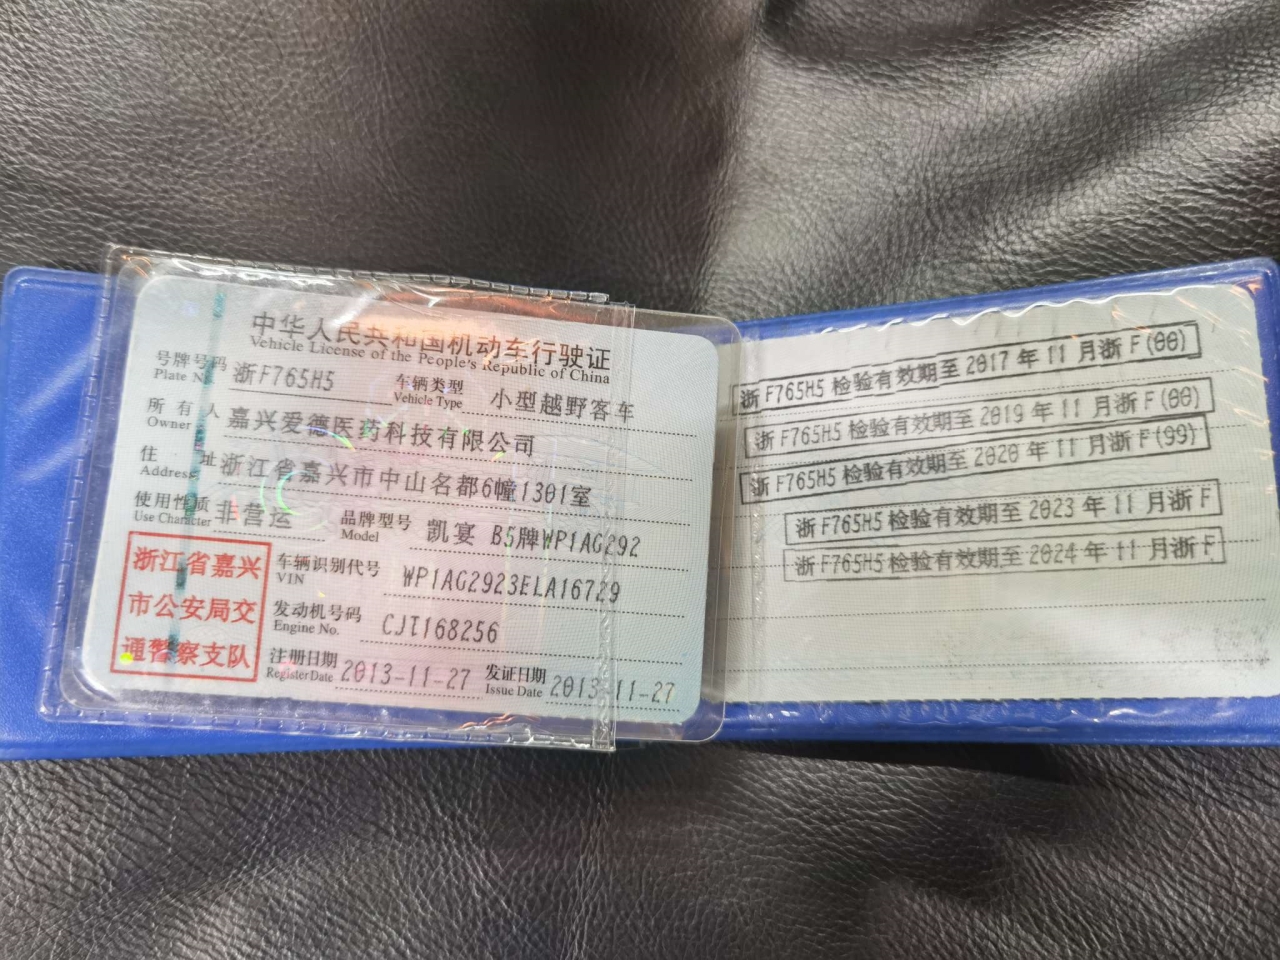 中华人民共和国机动车行驶证
Vehicle License of the People's Republic of China
号牌号码 浙F765H5 车辆类型 小型越野客车
Plate No. Vehicle Type
所有人 嘉兴爱德医药科技有限公司
Owner
住址 浙江省嘉兴市中山名都6幢1301室
Address
使用性质 非营运 品牌型号 凯宴 B5牌WP1AG292
Use Character Model
浙江省嘉兴
市公安局交
通警察支队
车辆识别代号 WP1AG2923ELA16729
VIN
发动机号码 CJT168256
Engine No.
注册日期 2013-11-27 发证日期 2013-11-27
Register Date Issue Date
浙F765H5 检验有效期至 2017 年 11 月浙 F(00)
浙 F765H5 检验有效期至 2019 年 11 月浙 F(00)
浙 F765H5 检验有效期至 2020 年 11 月浙 F(99)
浙 F765H5 检验有效期至 2023 年 11 月浙 F
浙 F765H5 检验有效期至 2024 年 11 月浙 F